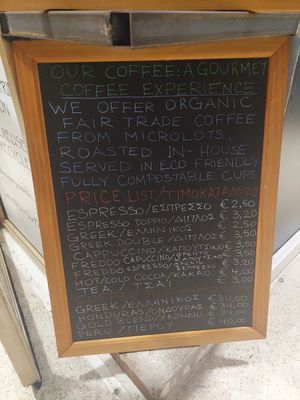 OUR COFFEE: A GOURMET
COFFEE EXPERIENCE
WE OFFER ORGANIC
FAIR TRADE COFFEE
FROM MICROLOTS,
ROASTED IN-HOUSE
SERVED IN ECO FRIENDLY
FULLY COMPOSTABLE CUPS
PRICE LIST/ΤΙΜΟΚΑΤΑΛΟΓΟΣ
ESPRESSO/ΕΣΠΡΕΣΣΟ €2,50
ESPRESSO DOPPIO/ΔΙΠΛΟΣ €3,20
GREEK/ΕΛΛΗΝΙΚΟΣ €2,50
GREEK DOUBLE/ΔΙΠΛΟΣ €3,50
CAPPUCCINO/ΚΑΠΟΥΤΣΙΝΟ €3,50
FREDDO CAPPUCCINO/ΦΡΕΝΤΟ €3,50
FREDDO ESPRESSO/ΦΡΕΝΤΟ ΕΣΠΡΕΣΣΟ €3,20
HOT/COLD COCOA/ΚΑΚΑΟ €4,00
TEA/ΤΣΑΙ €3,00
GREEK/ΕΛΛΗΝΙΚΟΣ €30,00
HONDURAS/ΟΝΔΟΥΡΑΣ €34,00
GOLD BLEND/ΧΑΡΜΑΝΙ €34,00
PERU/ΠΕΡΟΥ €40,00